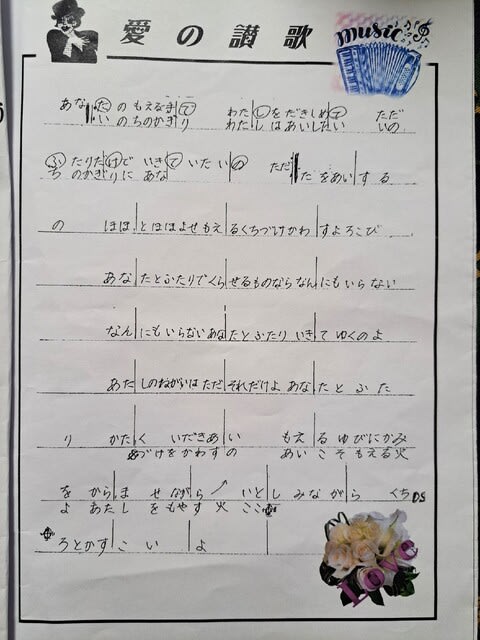 愛の讃歌
music
あなたのもえるまで わたしをだきしめて ただ
いのちのかぎり わたしはあいしたい いの
ふたりだけで いきていたいの ただ
ちのかぎりに あな たをあいする
の ほほとほほよせもえるくちづけかわすよろこび
あなたとふたりでくらせるものならなんにもいらない
なんにもいらないあなたとふたりいきてゆくのよ
あたしのねがいはただそれだけよあなたとふた
り かたくいだきあい もえるゆびにかみ
づけをかわすの あいこそもえる火
をからませながら いとしみながら くち DS
よ あたしをもやす火 ここ
ろとかすこいよ
LOVE